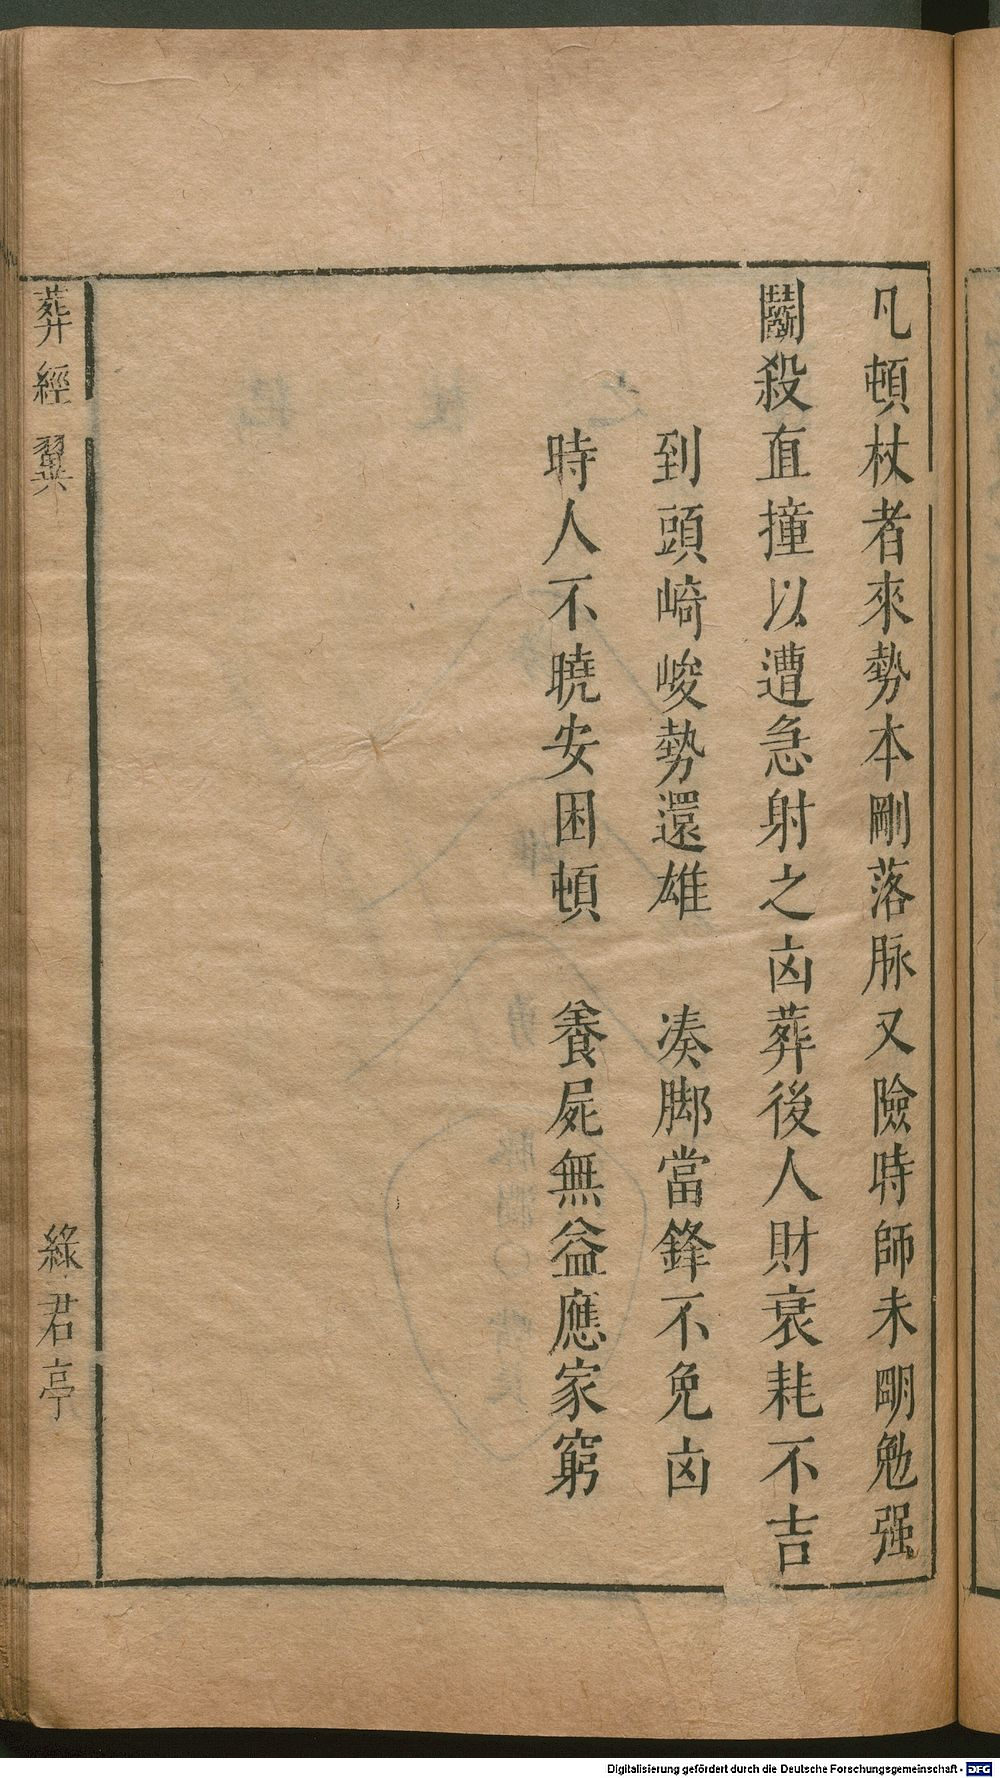 凡頓杖者來勢本剛落脉又險時師未明勉强
鬭殺直撞以遭急射之凶葬後人財衰耗不吉
到頭崎峻勢還雄　湊脚當鋒不免凶
時人不曉安困頓　養屍無益應家窮
葬經翼
綠君亭
Digitalisierung gefördert durch die Deutsche Forschungsgemeinschaft - DFG